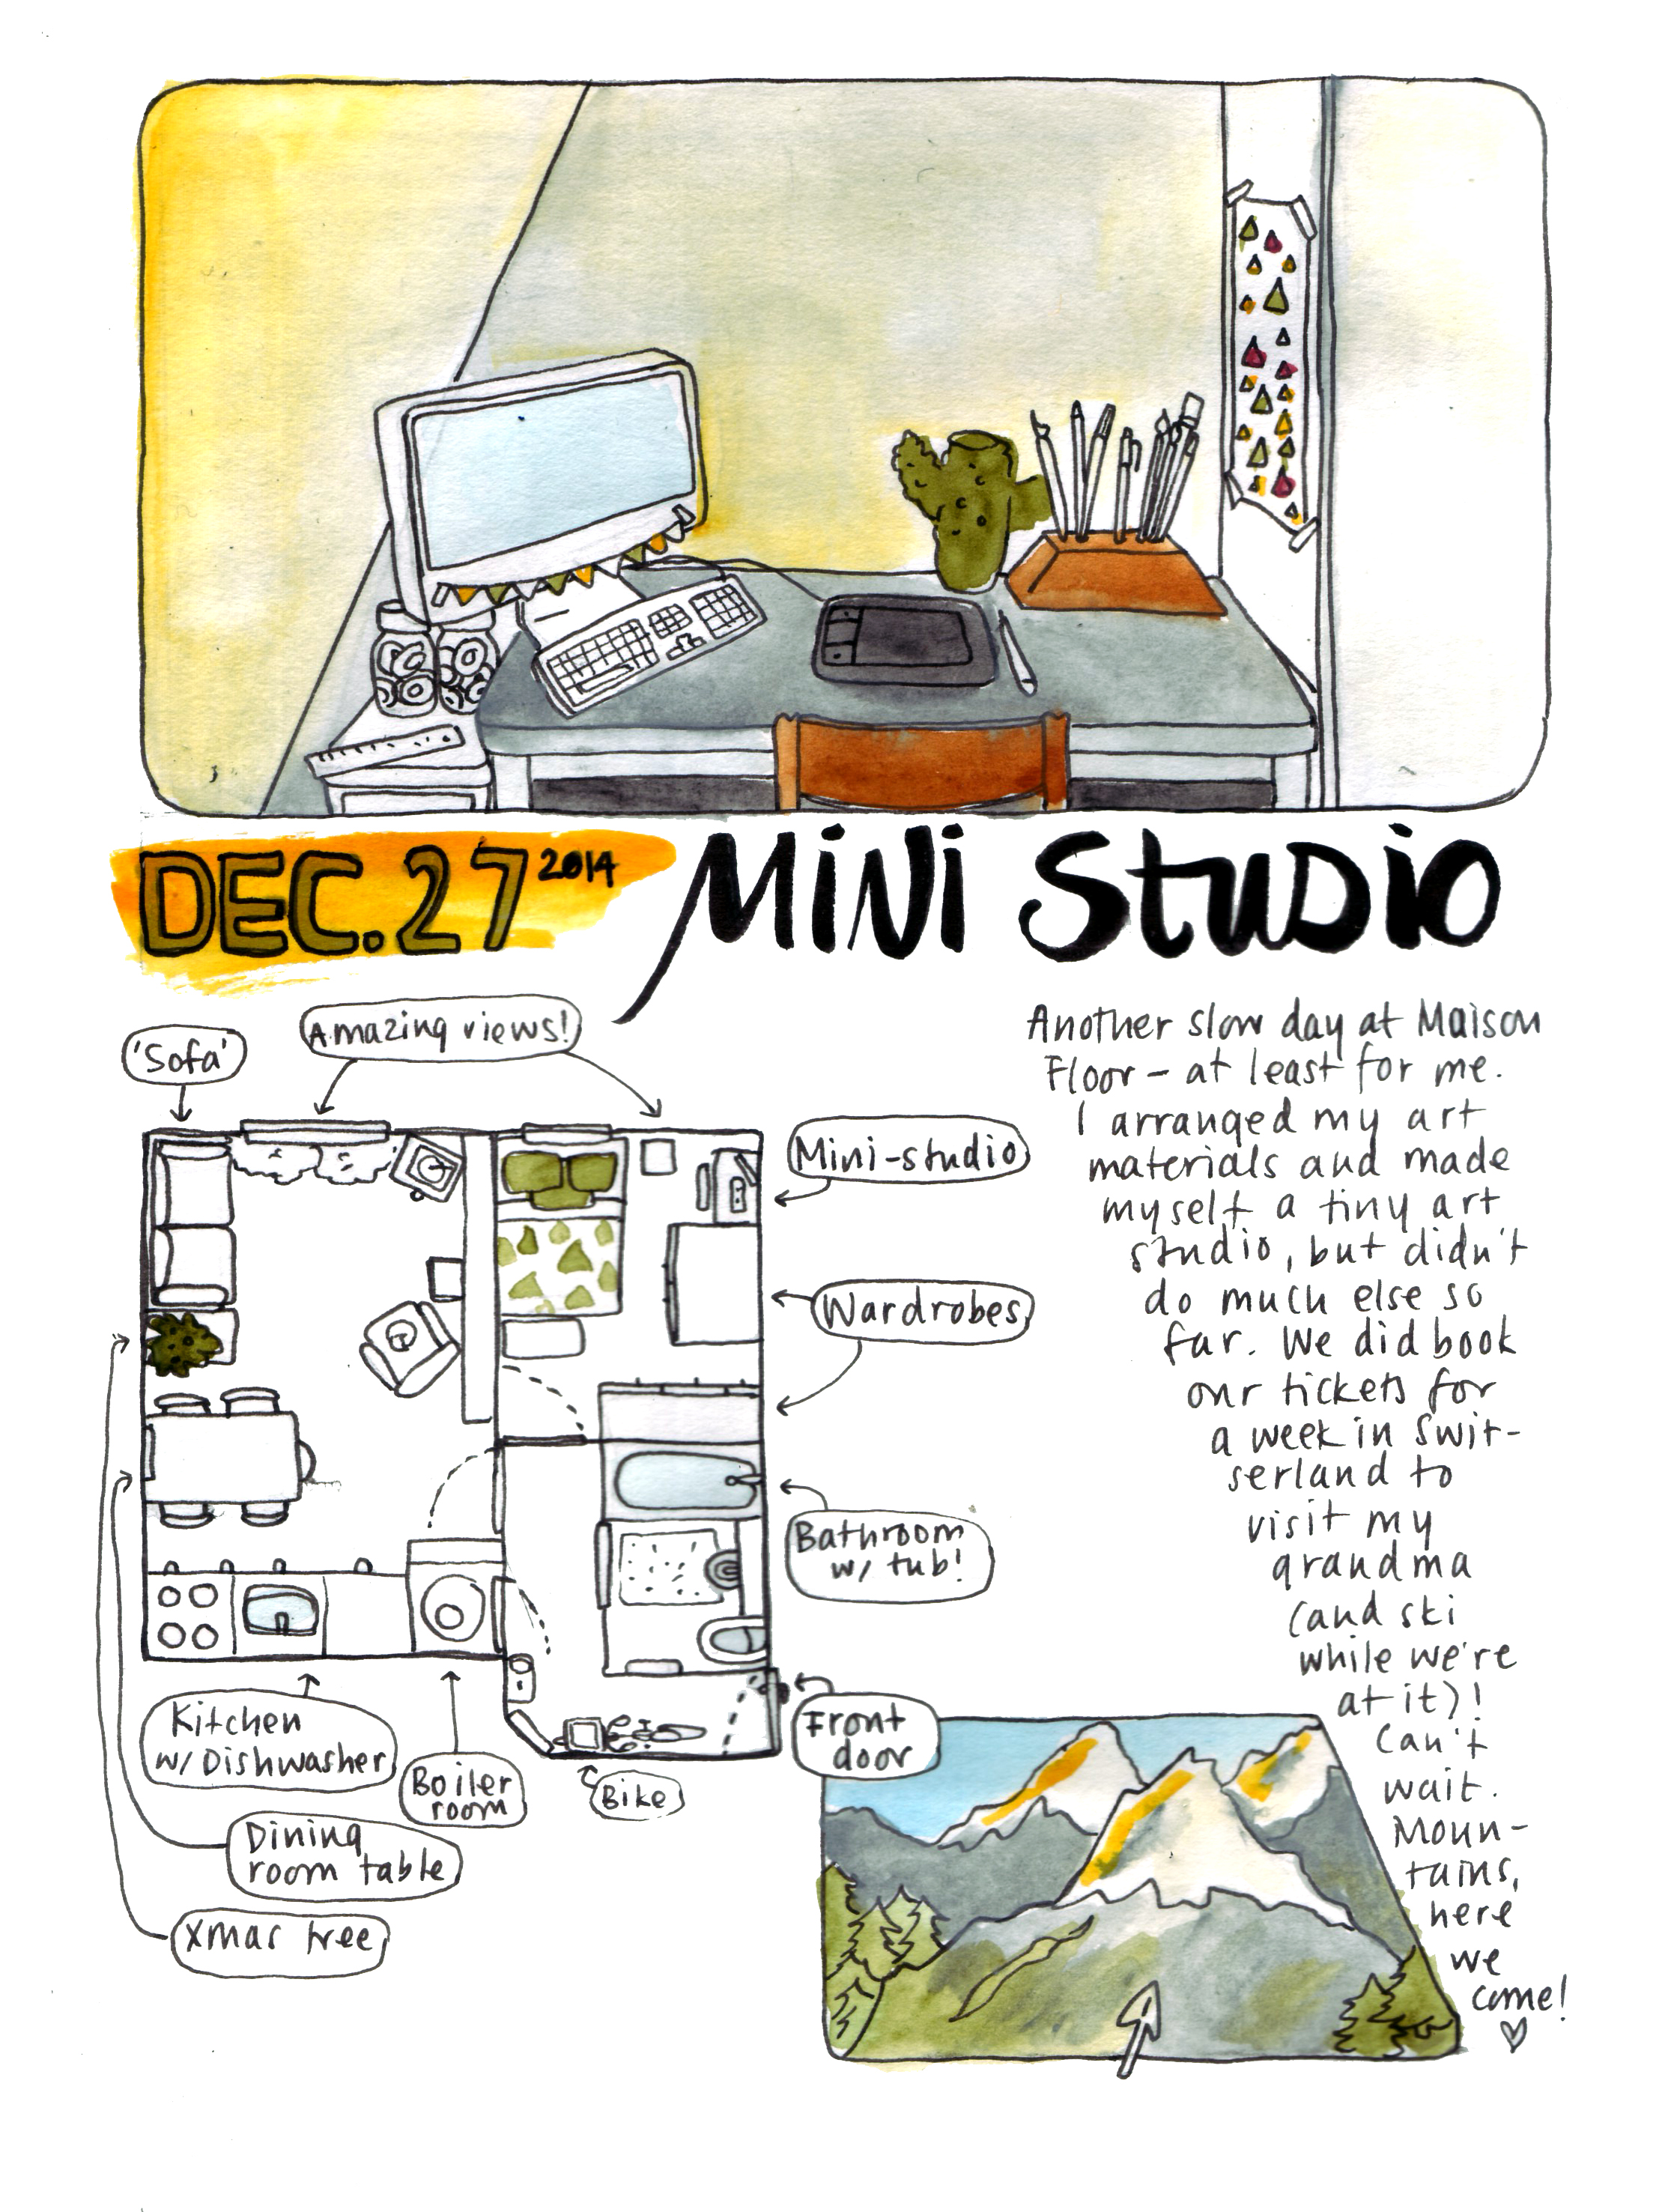 DEC.27 2014
MiNi StuDio
'Sofa'
Amazing views!
Mini-studio
Wardrobes
Bathroom
w/ tub!
Front
door
Kitchen
w/Dishwasher
Boiler
room
Bike
Dining
room table
Xmas tree
Another slow day at Maison
Floor - at least for me.
I arranged my art
materials and made
myself a tiny art
studio, but didn't
do much else so
far. We did book
our tickets for
a week in Swit-
serland to
visit my
grandma
(and ski
while we're
at it)!
Can't
wait.
Moun-
tains,
here
we
come!